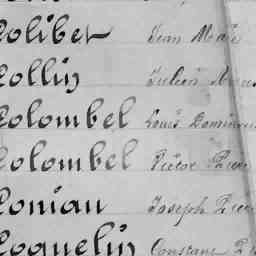 Colibet Jean Marie
Collin Julien
Colombel Louis
Colombel Victor Pierre
Conian Joseph
Coquelin Constant